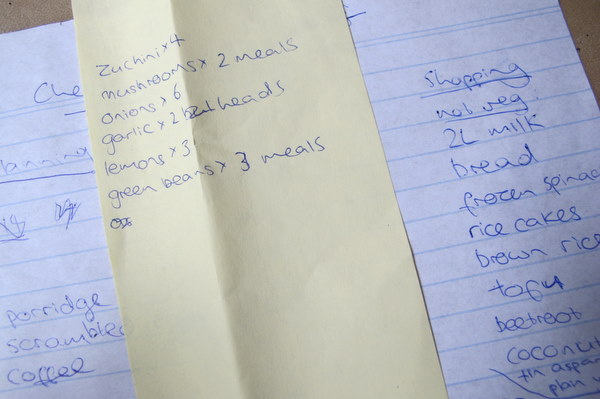 zuchini x 4
mushrooms x 2 meals
onions x 6
garlic x 2 heads
lemons x 3
green beans x 3 meals
Che
lanning
porridge
scrambled
coffee
Shopping
not veg.
2L milk
bread
frozen spinac
rice cakes
brown rice
tofu
beetroot
coconut
tin aspar
plain